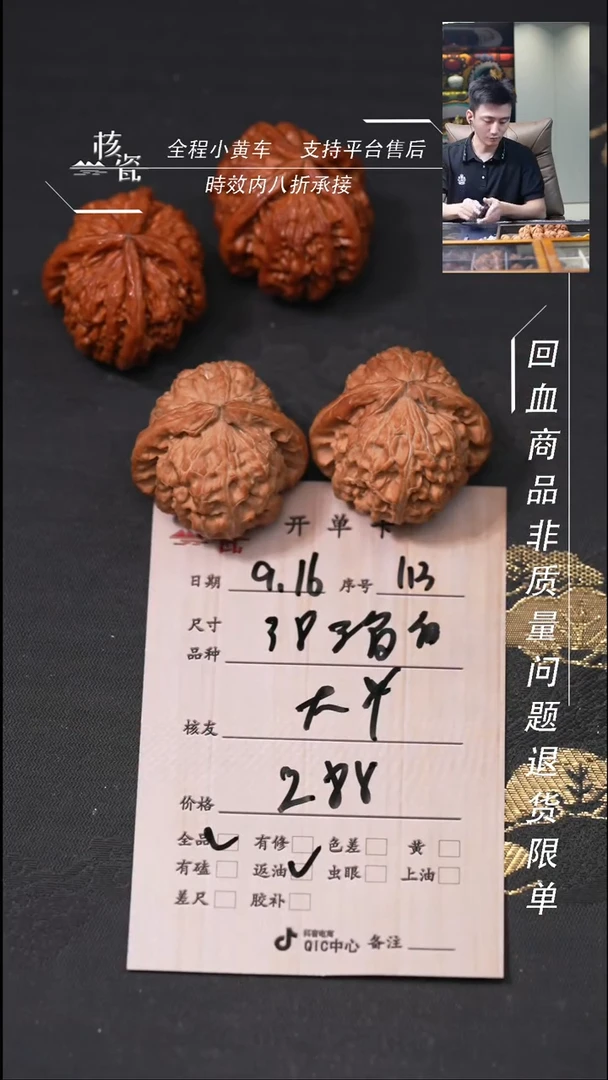 核瓷
全程小黄车 支持平台售后
時效内八折承接
回血商品非质量问题退货限单
开单卡
日期 9.16 序号 113
尺寸 38
品种
核友 大
价格 288
全品 有修 色差 黄
有磕 返油 虫眼 上油
差尺 胶补
抖音电商
QIC中心 备注